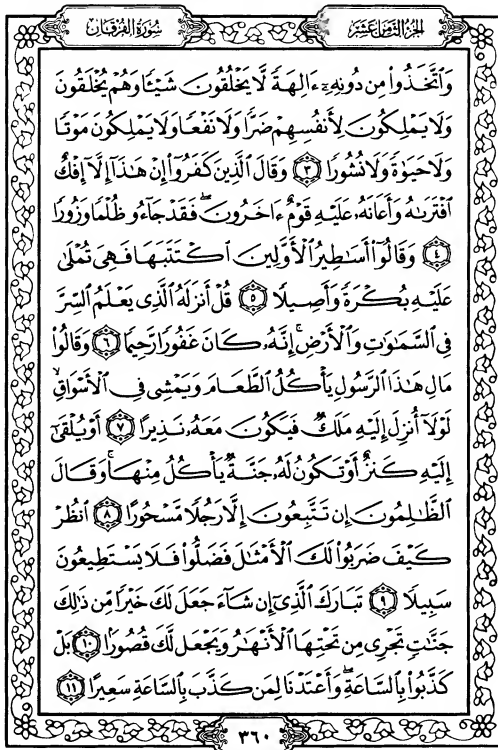 الجزء الثامن عشر
سورة الفرقان
وَاتَّخَذُوا مِن دُونِهِۦٓ ءَالِهَةً لَّا يَخْلُقُونَ شَيْـًٔا وَهُمْ يُخْلَقُونَ
وَلَا يَمْلِكُونَ لِأَنفُسِهِمْ ضَرًّا وَلَا نَفْعًا وَلَا يَمْلِكُونَ مَوْتًا
وَلَا حَيَوٰةً وَلَا نُشُورًا ٣ وَقَالَ الَّذِينَ كَفَرُوٓا إِنْ هَٰذَآ إِلَّآ إِفْكٌ
افْتَرَىٰهُ وَأَعَانَهُۥ عَلَيْهِ قَوْمٌ ءَاخَرُونَ ۖ فَقَدْ جَآءُو ظُلْمًا وَزُورًا
٤ وَقَالُوٓا أَسَٰطِيرُ الْأَوَّلِينَ اكْتَتَبَهَا فَهِىَ تُمْلَىٰ
عَلَيْهِ بُكْرَةً وَأَصِيلًا ٥ قُلْ أَنزَلَهُ الَّذِى يَعْلَمُ السِّرَّ
فِى السَّمَٰوَٰتِ وَالْأَرْضِ ۚ إِنَّهُۥ كَانَ غَفُورًا رَّحِيمًا ٦ وَقَالُوا
مَالِ هَٰذَا الرَّسُولِ يَأْكُلُ الطَّعَامَ وَيَمْشِى فِى الْأَسْوَاقِ ۙ
لَوْلَآ أُنزِلَ إِلَيْهِ مَلَكٌ فَيَكُونَ مَعَهُۥ نَذِيرًا ٧ أَوْ يُلْقَىٰٓ
إِلَيْهِ كَنزٌ أَوْ تَكُونُ لَهُۥ جَنَّةٌ يَأْكُلُ مِنْهَا ۚ وَقَالَ
الظَّٰلِمُونَ إِن تَتَّبِعُونَ إِلَّا رَجُلًا مَّسْحُورًا ٨ انظُرْ
كَيْفَ ضَرَبُوا لَكَ الْأَمْثَٰلَ فَضَلُّوا فَلَا يَسْتَطِيعُونَ
سَبِيلًا ٩ تَبَارَكَ الَّذِىٓ إِن شَآءَ جَعَلَ لَكَ خَيْرًا مِّن ذَٰلِكَ
جَنَّٰتٍ تَجْرِى مِن تَحْتِهَا الْأَنْهَٰرُ وَيَجْعَل لَّكَ قُصُورًا ١٠ بَلْ
كَذَّبُوا بِالسَّاعَةِ ۖ وَأَعْتَدْنَا لِمَن كَذَّبَ بِالسَّاعَةِ سَعِيرًا ١١
٣٦٠